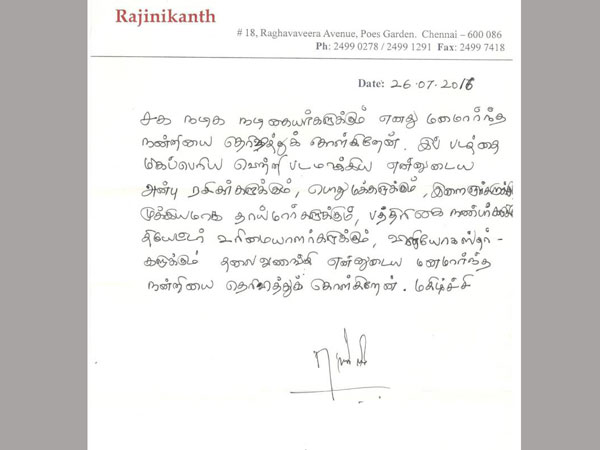 Rajinikanth
# 18, Raghavaveera Avenue, Poes Garden. Chennai – 600 086
Ph: 2499 0278 / 2499 1291 Fax: 2499 7418
Date: 26.07.2016
சக நடிக நடிகையர்களுக்கும் எனது மனமார்ந்த
நன்றியை தெரிவித்துக் கொள்கிறேன். இப் படத்தை
மிகப்பெரிய வெற்றி படமாக்கிய என்னுடைய
அன்பு ரசிகர்களுக்கும், பொதுமக்களுக்கும்,
முக்கியமாக தாய்மார்களுக்கும், பத்திரிகை
தியேட்டர் உரிமையாளர்களுக்கும், வினியோகஸ்தர் -
களுக்கும் தலைவணங்கி என்னுடைய மனமார்ந்த
நன்றியை தெரிவித்துக் கொள்கிறேன். மகிழ்ச்சி